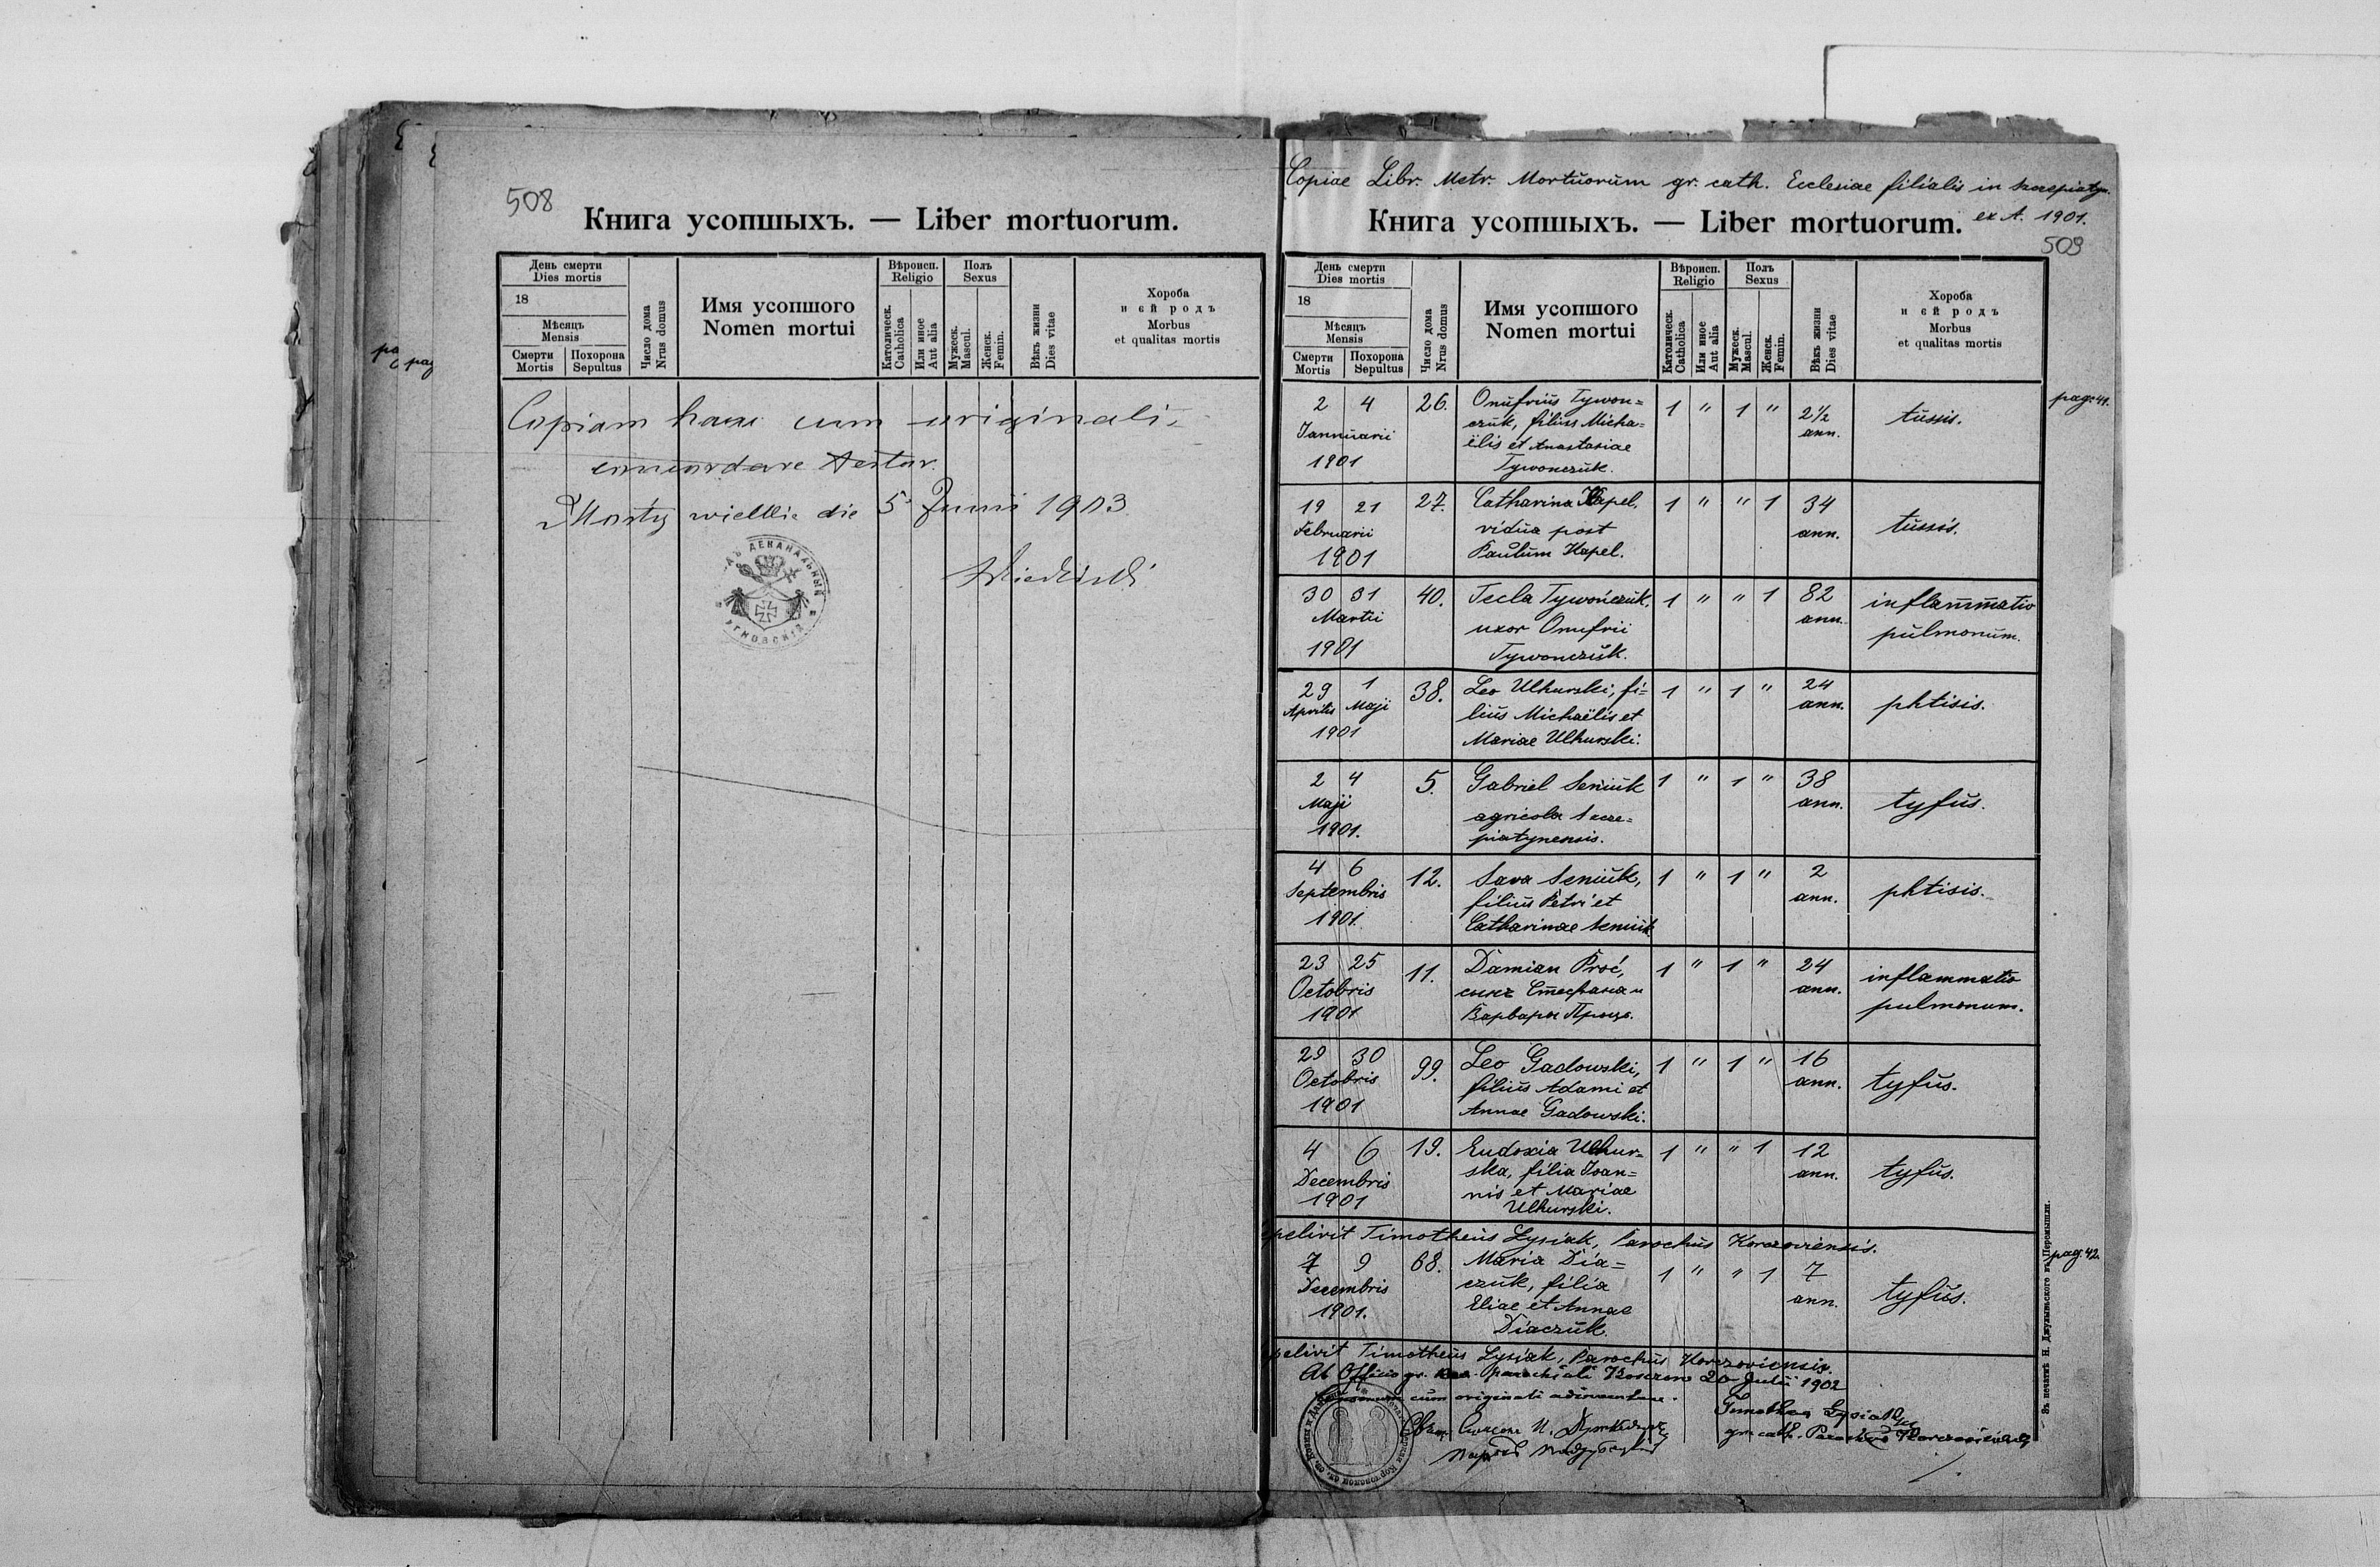 508
Книга усопшыхъ. — Liber mortuorum.
День смерти
Dies mortis
18
Мѣсяцъ
Mensis
Смерти
Mortis
Похорона
Sepultus
Число дома
Nrus domus
Имя усопшого
Nomen mortui
Вѣроисп.
Religio
Католическ.
Catholica
Или иное
Aut alia
Полъ
Sexus
Мужеск.
Mascul.
Женск.
Femin.
Вѣкъ жизни
Dies vitae
Хороба
и єй родъ
Morbus
et qualitas mortis
Copiam hanc cum originali
concordare testor.
Mosty wielkie die 5 Junii 1903
ДЕКАНАЛЬНЫЙ
pag
Copiae Libr. Metr. Mortuorum gr. cath. Ecclesiae filialis in Szczepiatyn.
ex A. 1901.
Книга усопшыхъ. — Liber mortuorum.
509
День смерти
Dies mortis
18
Мѣсяцъ
Mensis
Смерти
Mortis
Похорона
Sepultus
Число дома
Nrus domus
Имя усопшого
Nomen mortui
Вѣроисп.
Religio
Католическ.
Catholica
Или иное
Aut alia
Полъ
Sexus
Мужеск.
Mascul.
Женск.
Femin.
Вѣкъ жизни
Dies vitae
Хороба
и єй родъ
Morbus
et qualitas mortis
pag: 41.
2 4 26. Onufrius Tywon= 1 " 1 " 2½ tussis.
Jannuarii czuk, filius Micha= ann.
ëlis et Anastasiae
1901 Tywonczuk.
19 21 27. Catharina Kapel, 1 " " 1 34 tussis.
Februarii vidua post ann.
1901 Paulum Kapel.
30 31 40. Tecla Tywończuk, 1 " " 1 82 inflammatio
Martii uxor Onufrii ann. pulmonum.
1901 Tywonczuk.
29 1 38. Leo Ulhurski, fi= 1 " 1 " 24 phtisis.
Aprilis Maji lius Michaëlis et ann.
1901 Mariae Ulhurski.
2 4 5. Gabriel Seniuk 1 " 1 " 38 tyfus.
Maji agricola Szcze= ann.
1901. piatynensis.
4 6 12. Sava Seniuk, 1 " 1 " 2 phtisis.
Septembris filius Petri et ann.
1901. Catharinae Seniuk.
23 25 11. Damian Proć, 1 " 1 " 24 inflammatio
Octobris сынъ Стефана и ann. pulmonum.
1901 Варвары Проць.
29 30 99. Leo Gadowski, 1 " 1 " 16 tyfus.
Octobris filius Adami et ann.
1901 Annae Gadowski.
4 6 19. Eudoxia Ulhur= 1 " " 1 12 tyfus.
Decembris ska, filia Joan= ann.
1901 nis et Mariae
Ulhurski.
pelivit Timotheus Łysiak, Parochus Korczoviensis.
pag. 42.
7 9 68. Maria Dia= 1 " " 1 7 tyfus.
Decembris czuk, filia ann.
1901. Eliae et Annae
Diaczuk.
pelivit Timotheus Łysiak, Parochus Korczoviensis.
Ab Officio gr. parochiali Korczow 20 Julii 1902
cum originali
Timotheus Łysiak
gr. cath. Parochus Korczoviensis
Зъ печатнѣ Н. Джулыньского въ Перемышли.